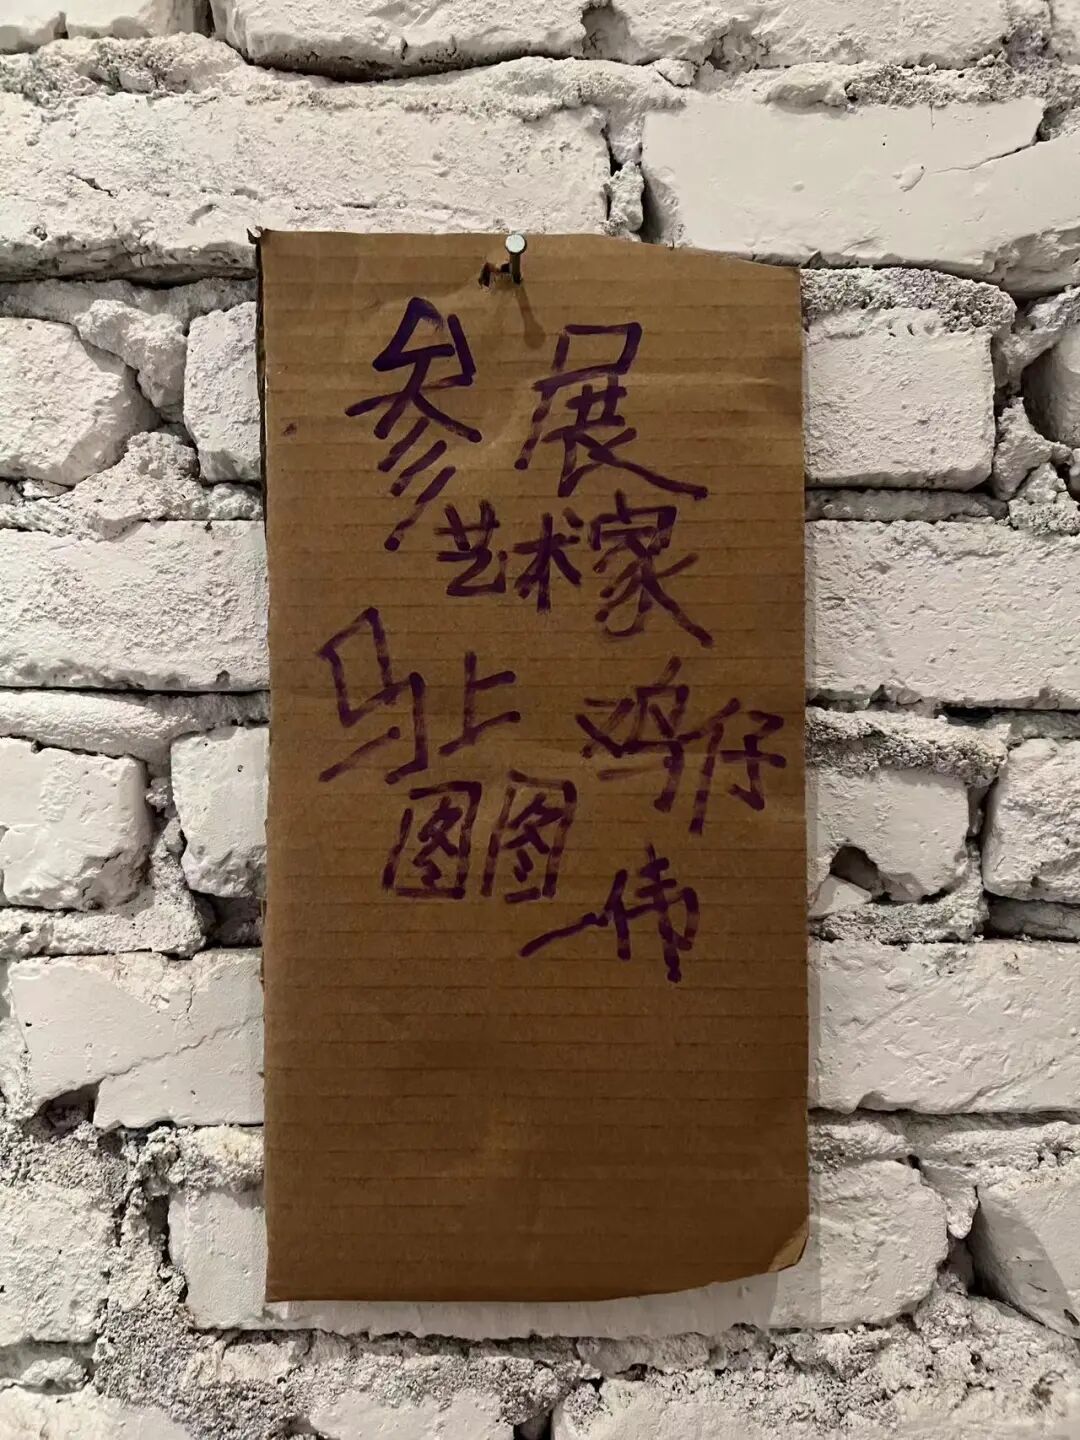 参展
艺术家
马上 鸡仔
图图 一伟